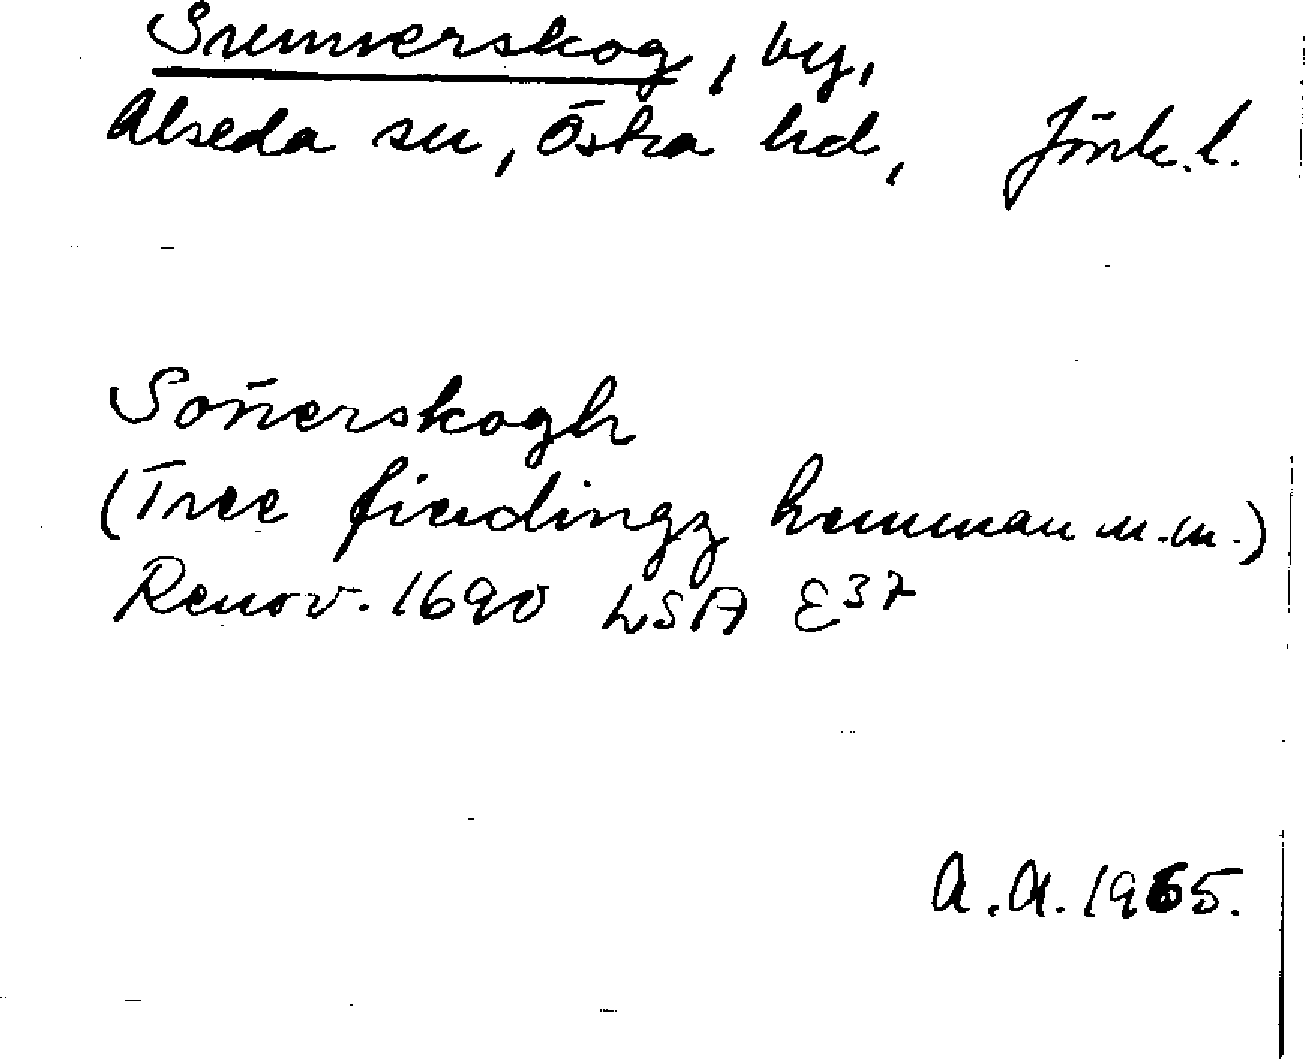 Sunnerskog, by,
Alseda sn, Östra hd, Jönk.l.
Son̄erskogh
(Tree fierdingz hemman m.m.)
Renov. 1690 LSA E37
A.A. 1965.